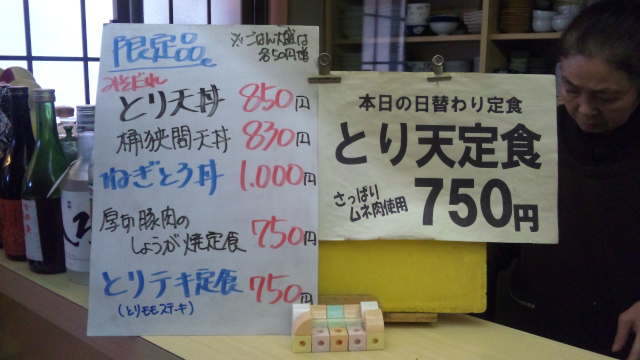 限定品。
※ごはん大盛は
各50円増
みそだれ
とり天丼 850円
桶狭間天丼 830円
ねぎとろ丼 1.000円
厚切豚肉の
しょうが焼定食 750円
とりテキ定食 750円
(とりモモステーキ)
本日の日替わり定食
とり天定食
さっぱり
ムネ肉使用 750円